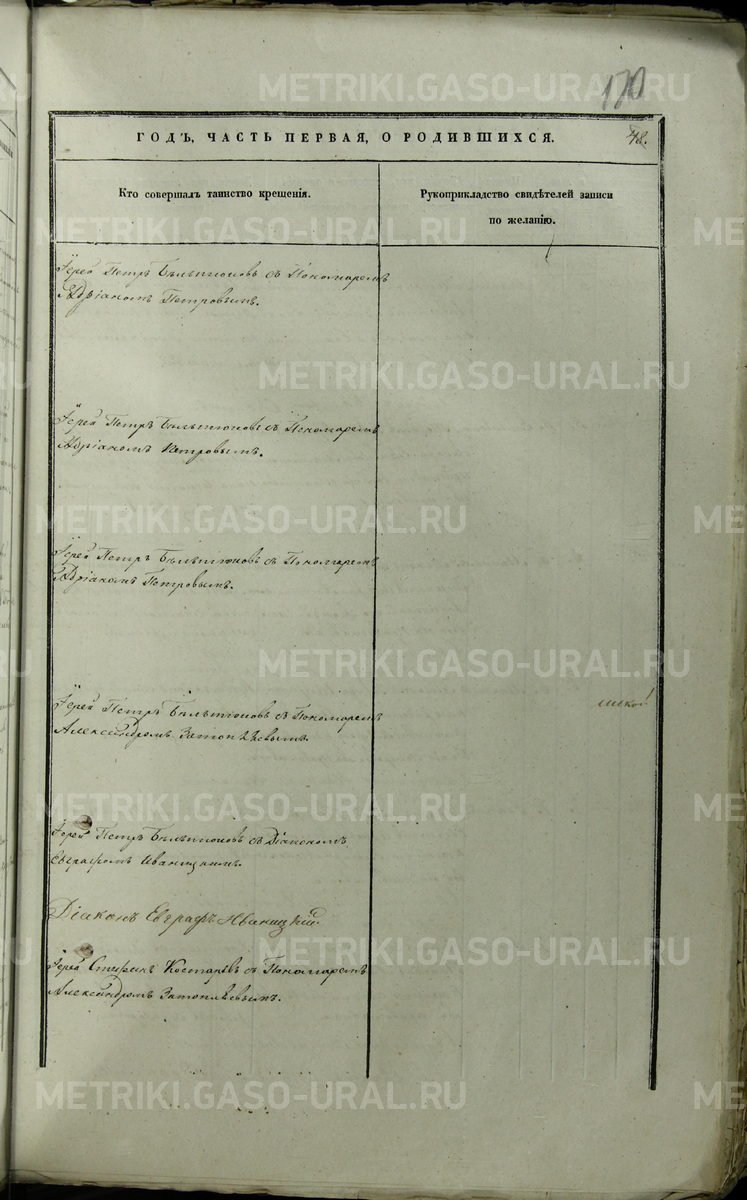 170
ГОДЪ, ЧАСТЬ ПЕРВАЯ, О РОДИВШИХСЯ.
48.
Кто совершалъ таинство крещенія.
Рукоприкладство свидѣтелей записи
по желанію.
Іерей Петръ Бѣльтюковъ съ Пономаремъ
Адріаномъ Петровымъ.
Іерей Петръ Бѣльтюковъ съ Пономаремъ
Адріаномъ Петровымъ.
Іерей Петръ Бѣльтюковъ съ Пономаремъ
Адріаномъ Петровымъ.
Іерей Петръ Бѣльтюковъ съ Пономаремъ
Александромъ
Іерей Петръ Бѣльтюковъ съ Діакономъ
Евграфомъ Иваницкимъ.
Діаконъ Евграфъ Иваницкій
Іерей Стефанъ Костаревъ съ Пономаремъ
Александромъ
METRIKI.GASO-URAL.RU
METRIKI.GASO-URAL.RU
METRIKI.GASO-URAL.RU
METRIKI.GASO-URAL.RU
METRIKI.GASO-URAL.RU
METRIKI.GASO-URAL.RU
METRIKI.GASO-URAL.RU
METRIKI.GASO-URAL.RU